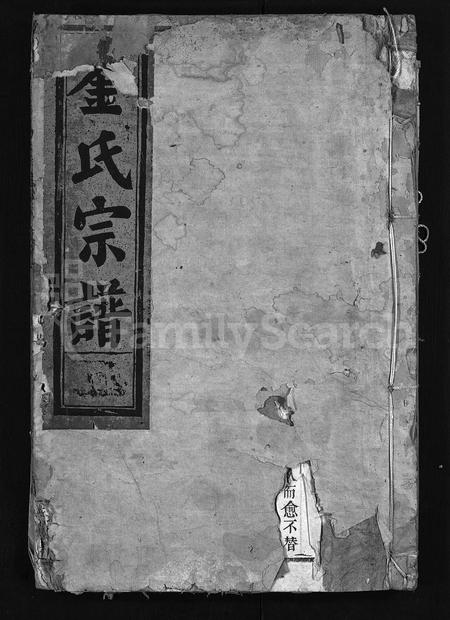 金氏宗譜
而愈不替
FamilySearch